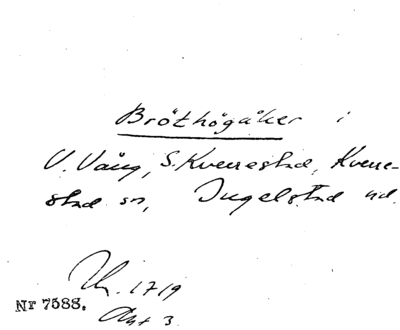 Bröthögåker i
V. Vång, S. Kvenestad, Kvene-
stad sn, Ingelstad hd.
1719
Nr 7588.
Akt 3